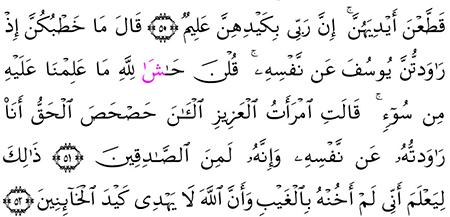 قَطَّعْنَ أَيْدِيَهُنَّ ۚ إِنَّ رَبِّى بِكَيْدِهِنَّ عَلِيمٌ ۝٥٠ قَالَ مَا خَطْبُكُنَّ إِذْ
رَٰوَدتُّنَّ يُوسُفَ عَن نَّفْسِهِۦ ۚ قُلْنَ حَـٰشَ لِلَّهِ مَا عَلِمْنَا عَلَيْهِ
مِن سُوٓءٍ ۚ قَالَتِ ٱمْرَأَتُ ٱلْعَزِيزِ ٱلْـَٔـٰنَ حَصْحَصَ ٱلْحَقُّ أَنَا۠
رَٰوَدتُّهُۥ عَن نَّفْسِهِۦ وَإِنَّهُۥ لَمِنَ ٱلصَّـٰدِقِينَ ۝٥١ ذَٰلِكَ
لِيَعْلَمَ أَنِّى لَمْ أَخُنْهُ بِٱلْغَيْبِ وَأَنَّ ٱللَّهَ لَا يَهْدِى كَيْدَ ٱلْخَآئِنِينَ ۝٥٢